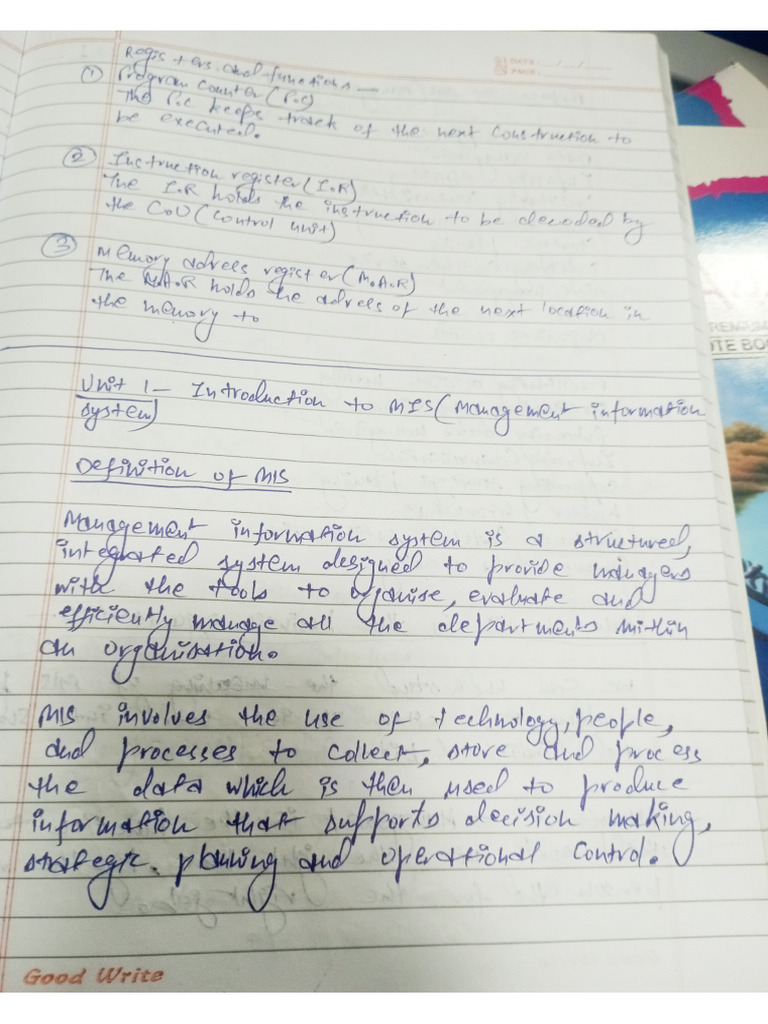 DATE: / /
PAGE:
Registers and functions —
① Program Counter (P.C)
The P.C keeps track of the next construction to
be executed.
② Instruction register (I.R)
The I.R holds the instruction to be decoded by
the CoU (Control unit)
③ Memory adrees register (M.A.R)
The M.A.R holds the adrees of the next location in
the memory to
Unit 1 – Introduction to MIS (Management information
system)
Definition of MIS
Management information system is a structured,
integrated system designed to provide managers
with the tools to organise, evaluate and
efficiently manage all the departments within
an organisation.
MIS involves the use of technology, people,
and processes to collect, store and process
the data which is then used to produce
information that supports decision making,
strategic, planning and operational control.
Good Write
PREMIUM
NOTE BOO